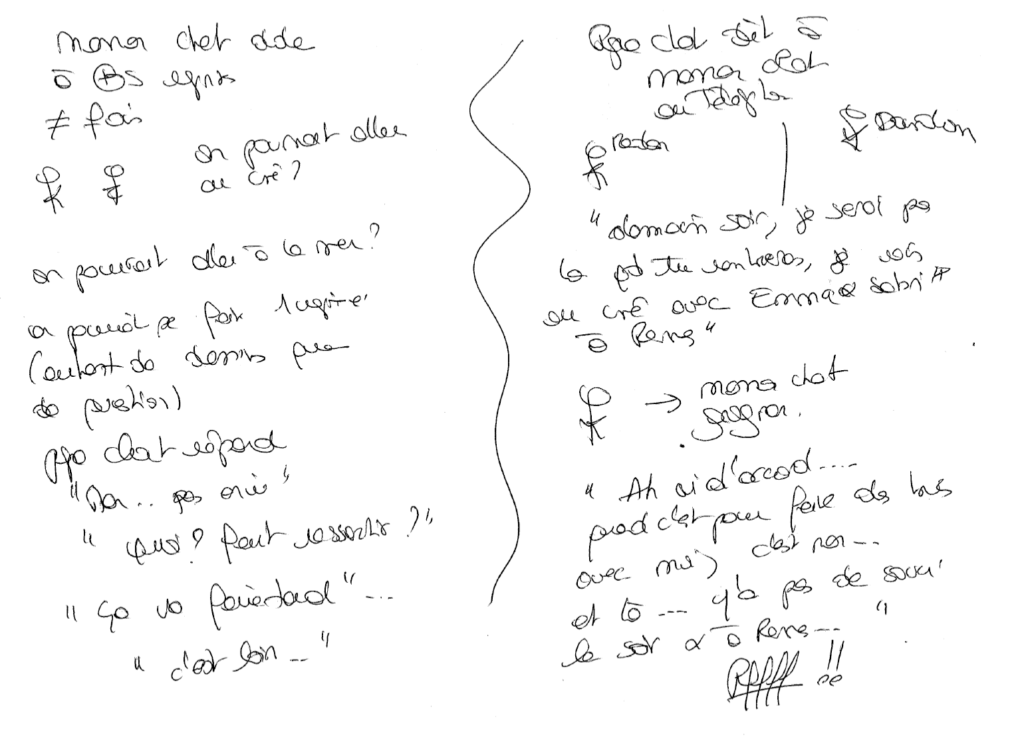 mona chat
à
≠ fois
on pourrait aller
au ciné ?
on pourrait aller à la mer ?
on pourrait se faire
(autant de dessins que
de question)
papa chat répond
"Non... pas envie"
"Quoi ? faut ressortir ?"
"ça va faire tard"...
"c'est loin..."
Papa chat dit à
mona chat
au Téléph
Pardon
"demain soir, je serai pas
là qd tu rentreras, je vais
au ciné avec Emma & Sabri
à Rens"
→ mona chat
"Ah oui d'accord....
quand c'est pour faire des trucs
avec moi, c'est non...
et là ... y'a pas de souci
le soir à Rens... "
Pfffff !!